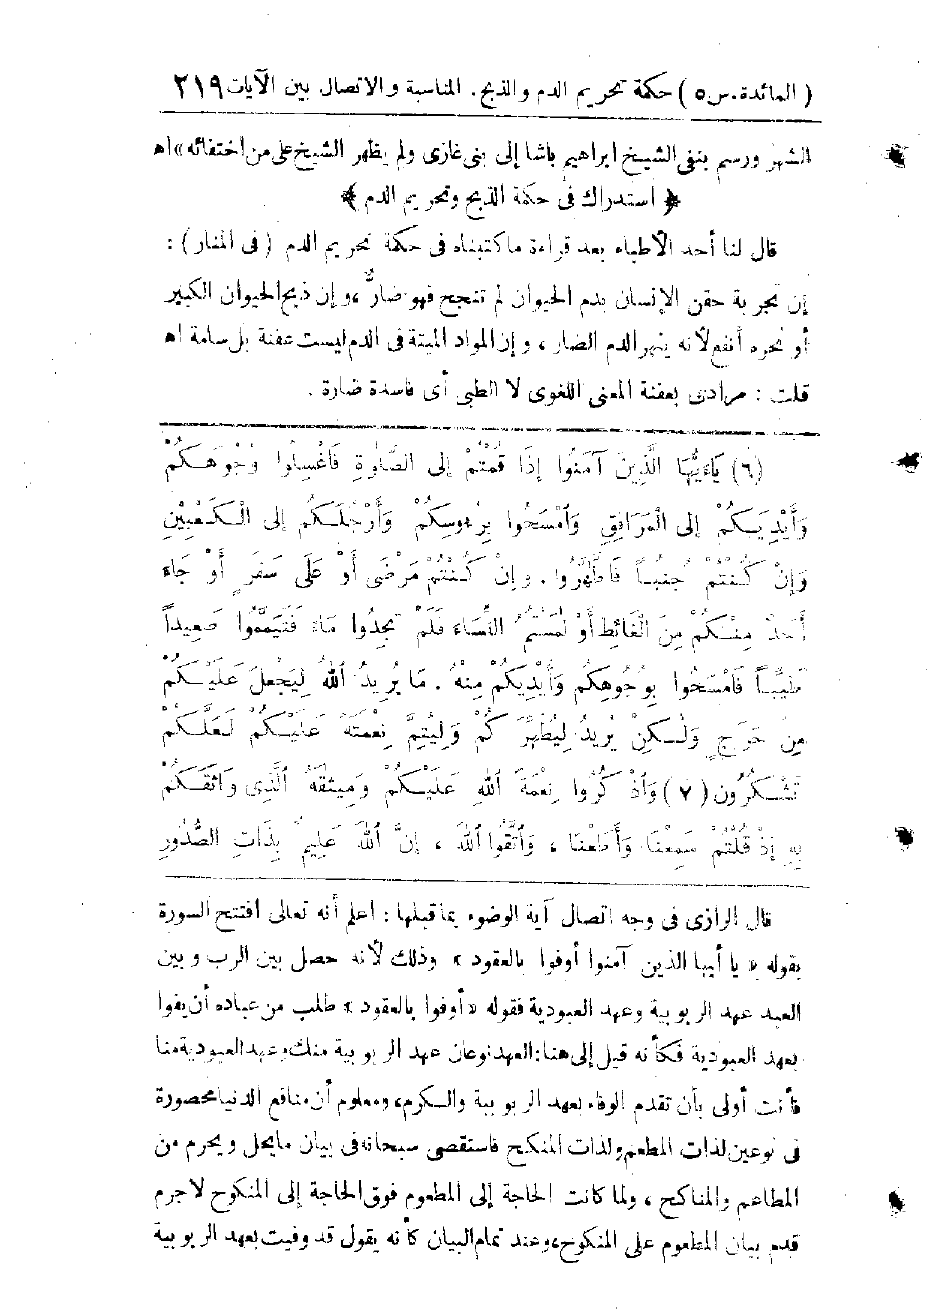 ( المائدة. س ٥ ) حكمة تحريم الدم والذبح. المناسبة والاتصال بين الآيات ٢١٩
الشهر ورسم بنفى الشيخ ابراهيم باشا إلى بنى غازى ولم يظهر الشيخ على من اختفائه » اهـ
﴿ استدراك فى حكمة الذبح وتحريم الدم ﴾
قال لنا أحد الأطباء بعد قراءة ما كتبناه فى حكمة تحريم الدم ( فى المنار ) :
إن تجربة حقن الإنسان بدم الحيوان لم تنجح فهو ضارٌّ ، وإن ذبح الحيوان الكبير
أو نحره أنفع لأنه ينهر الدم الضار ، وإن المواد الميتة فى الدم ليست عفنة بل سامة اهـ
قلت : مرادى بعفنة المعنى اللغوى لا الطبى أى فاسدة ضارة .
(٦) يَاءَيُّهَا الَّذِينَ آمَنُوا إِذَا قُمْتُمْ إِلى الصَّلوةِ فَاغْسِلُوا وُجُوهَكُمْ
وَأَيْدِيَكُمْ إِلى الْمَرَافِقِ وَامْسَحُوا بِرُءوسِكُمْ وَأَرْجُلَكُم إِلى الْكَعْبَيْنِ
وَإِنْ كُنْتُمْ جُنُباً فَاطَّهَّرُوا . وإِنْ كُنْتُمْ مَرْضَى أَوْ عَلَى سَفَرٍ أَوْ جَاءَ
أَحَدٌ مِنْكُمْ مِنَ الْغَائِطِ أَوْ لَمَسْتُمُ النِّسَاءَ فَلَمْ تَجِدُوا مَاءً فَتَيَمَّمُوا صَعِيداً
طَيِّباً فَامْسَحُوا بِوُجُوهِكُم وَأَيْدِيكُمْ مِنْهُ . مَا يُرِيدُ اللهُ لِيَجْعَلَ عَلَيْكُمْ
مِن حَرَجٍ وَلَكِنْ يُرِيدُ لِيُطَهِّرَ كُمْ وَلِيُتِمَّ نِعْمَتَهُ عَلَيْكُمْ لَعَلَّكُمْ
تَشْكُرُون ( ٧ ) وَاذْ كُرُوا نِعْمَةَ اللهِ عَلَيْكُمْ وَمِيثقَهُ الَّذِى وَاثَقَكُمْ
بِهِ إِذْ قُلْتُمْ سَمِعْنَا وَأَطَعْنَا ، وَاتَّقُوا اللهَ ، إِنَّ اللهَ عَلِيمٌ بِذَاتِ الصُّدُورِ
قال الرازى فى وجه اتصال آية الوضوء بما قبلها : اعلم أنه تعالى افتتح السورة
بقوله « يا أيها الذين آمنوا أوفوا بالعقود » وذلك لأنه حصل بين الرب وبين
العبد عهد الربوبية وعهد العبودية فقوله « أوفوا بالعقود » طلب من عباده أن يفوا
بعهد العبودية فكأنه قيل إلى هنا : العهد نوعان عهد الربوبية منك وعهد العبودية منا
فأنت أولى بأن تقدم الوفاء بعهد الربوبية والكرم، ومعلوم أن منافع الدنيا محصورة
فى نوعين لذات المطعم ولذات المنكح فاستقصى سبحانه فى بيان ما يحل ويحرم من
المطاعم والمناكح ، ولما كانت الحاجة إلى المطعوم فوق الحاجة إلى المنكوح لا جرم
قدم بيان المطعوم على المنكوح، وعند تمام البيان كأنه يقول قد وفيت بعهد الربوبية